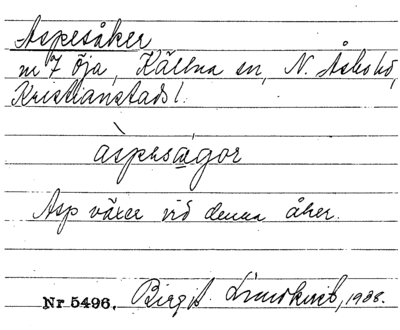 Aspesåker
nr 7 Öja, Källna sn, N. Åsbo hd,
Kristianstads l.
àspesa̲gór
Asp växer vid denna åker.
Nr 5496. Birgit Lindkvist, 1938.